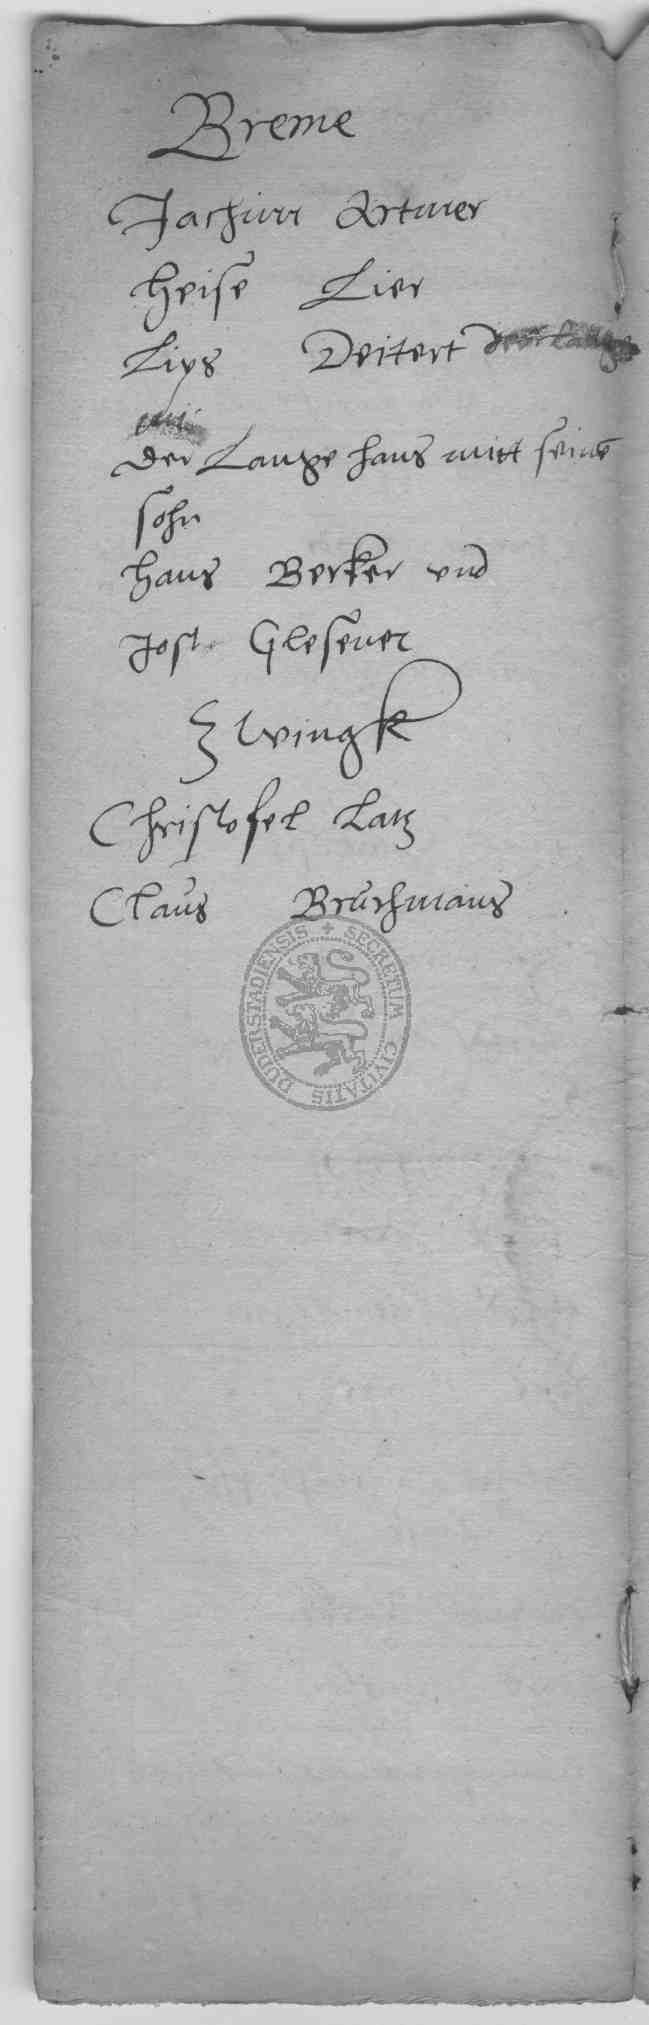 Breme
Jachim Artmer
Heise Lier
Lips Deitert der lange
mit
der Lange Hans mitt seinē
sohn
Hans Berker vnd
Jost Glesener
Zwingk
Christofel Latz
Claus Bruchmans
SECRETUM CIVITATIS DUDERSTADIENSIS